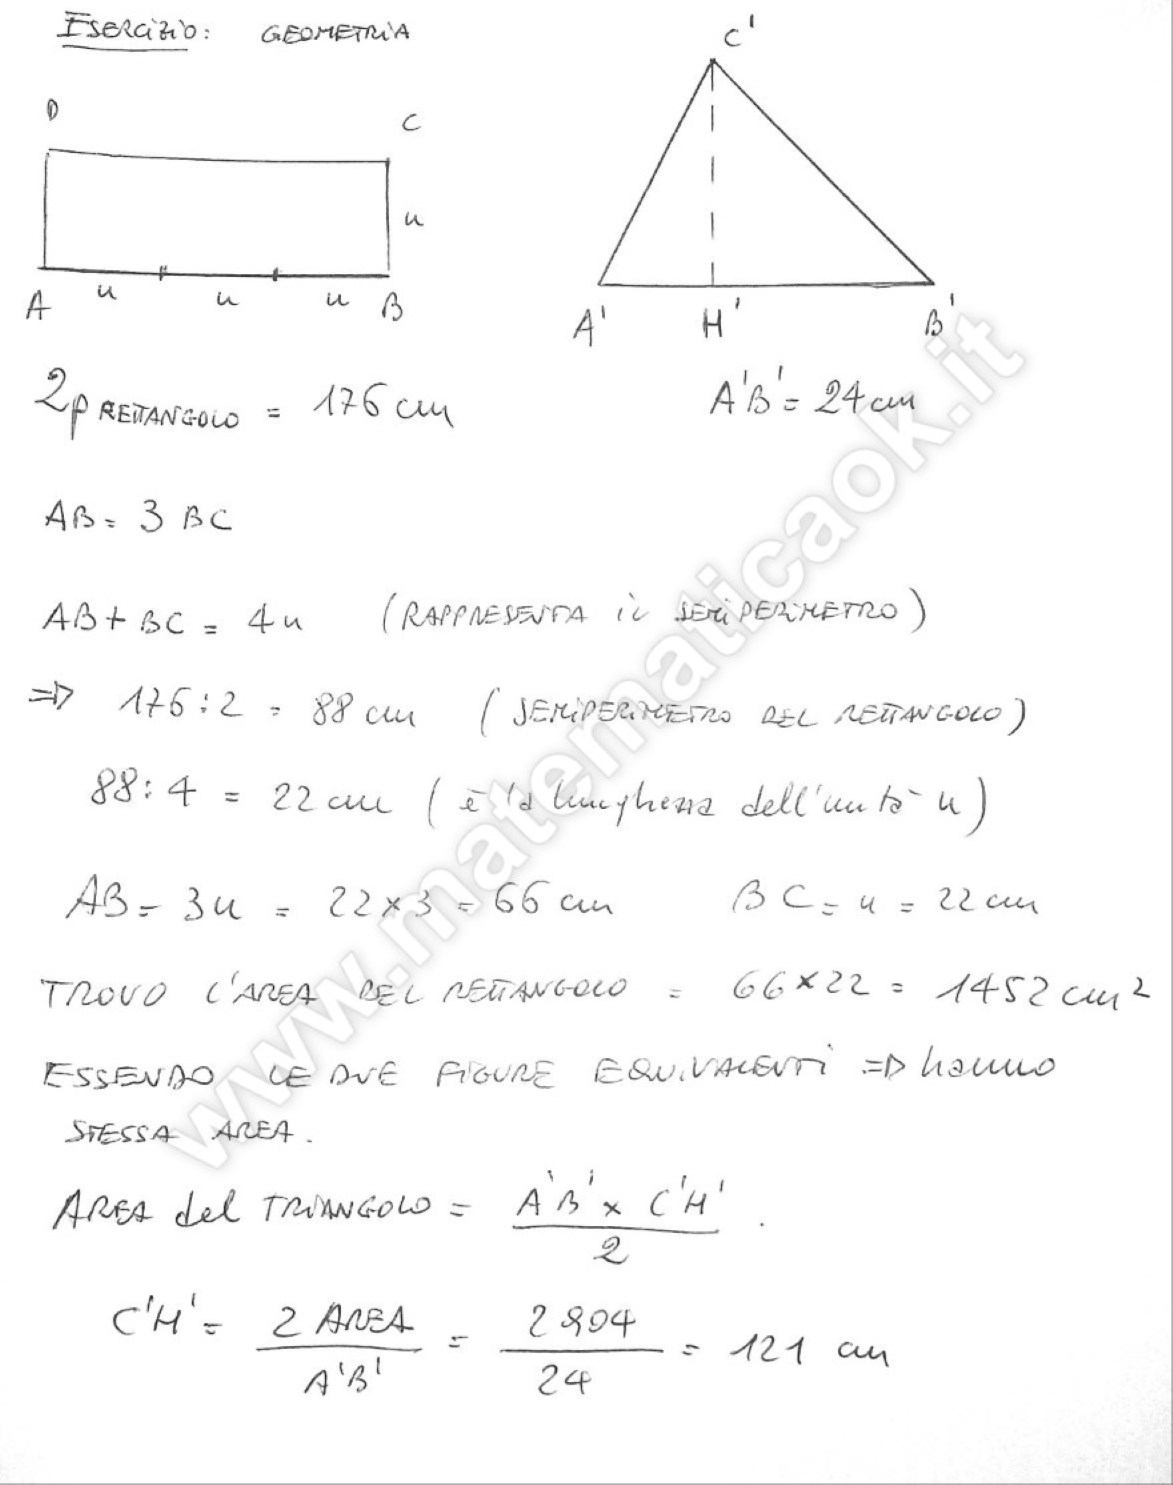 ESERCIZIO: GEOMETRIA
C'
D
C
u
u
u
u
A
B
A'
H'
B'
2p RETTANGOLO = 176 cm
A'B' = 24 cm
AB = 3 BC
AB + BC = 4u (RAPPRESENTA il SEMIPERIMETRO)
=> 176 : 2 = 88 cm (SEMIPERIMETRO DEL RETTANGOLO)
88 : 4 = 22 cm (è la lunghezza dell'unità u)
AB = 3u = 22 x 3 = 66 cm
BC = u = 22 cm
TROVO L'AREA DEL RETTANGOLO = 66 x 22 = 1452 cm²
ESSENDO LE DUE FIGURE EQUIVALENTI => hanno
STESSA AREA.
AREA del TRIANGOLO = A'B' x C'H' / 2 .
C'H' = 2 AREA / A'B' = 2904 / 24 = 121 cm
www.matematicaok.it